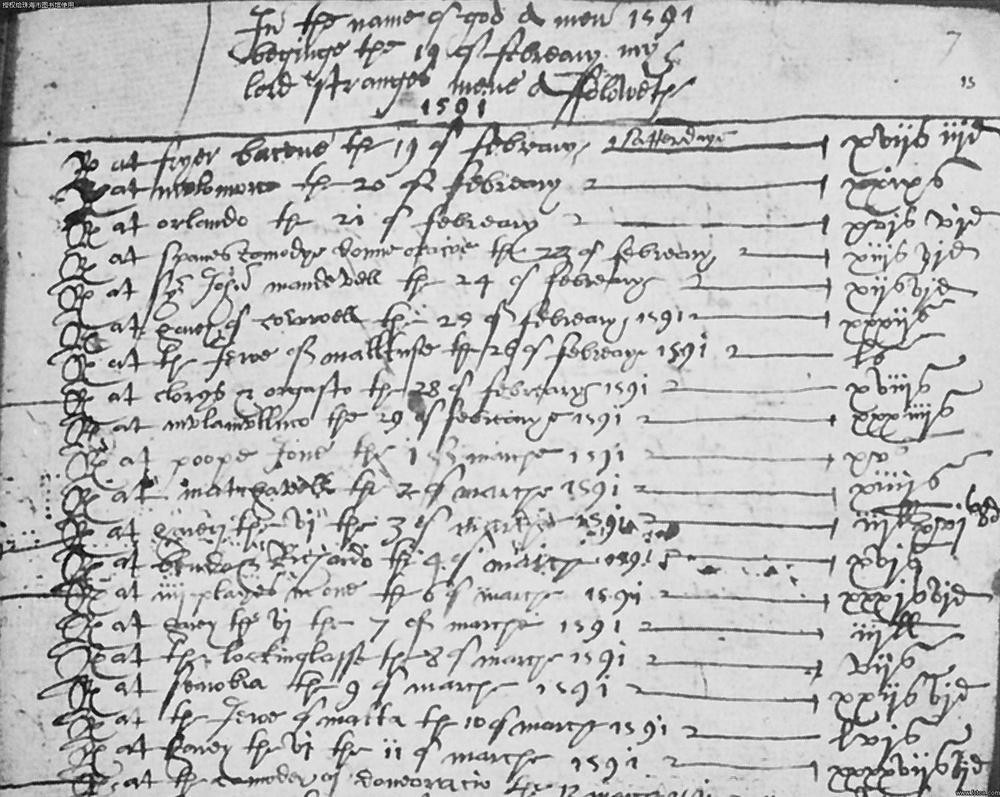 授权给珠海市图书馆使用
In the name of god A men 1591
beginge the 19 of febreary my
lord stranges mene A ffoloweth
1591
7
15
Rd at fryer bacvne the 19 of febreary satterdaye xvijs iijd
Rd at mvlomvrco the 20 of febreary xxixs
Rd at orlando the 21 of febreary xvjs vjd
Rd at spanes comodye donne oracioe the 23 of febreary xiijs vjd
Rd at syr John mandevell the 24 of febreary xijs vjd
Rd at harey of cornwell the 25 of febreary 1591 xxxijs
Rd at the Jewe of malltuse the 26 of febreary 1591 ls
Rd at clorys & orgasto the 28 of febreary 1591 xviijs
Rd at mvlamvllvco the 29 of febreary 1591 xxxiiijs
Rd at poope Jone the 1 of marche 1591 xvs
Rd at matchavell the 2 of marche 1591 xiiijs
Rd at harey the vj the 3 of marche 1591 iijll xvjs 8d
Rd at bendo & Richardo the 4 of marche 1591 xvjs
Rd at iiij playes in one the 6 of marche 1591 xxxjs vjd
Rd at harey the vj the 7 of marche 1591 iijll
Rd at the lockinglasse the 8 of marche 1591 vijs
Rd at senobia the 9 of marche 1591 xxijs vjd
Rd at the Jewe of malta the 10 of marche 1591 lvjs
Rd at harey the vj the 11 of marche 1591 xxxxvijs vjd
Rd at the comodey of doneoracio the 13 marche
www.fotoe.com